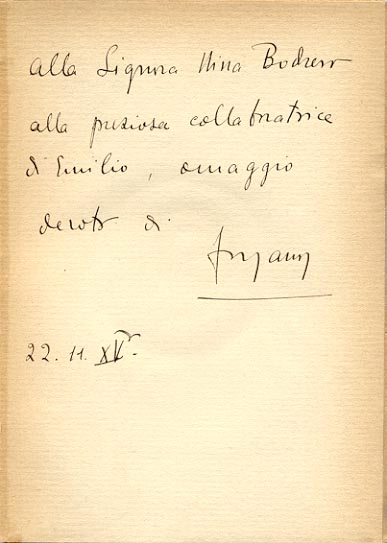 Alla Signora Nina Bodrero
alla preziosa collaboratrice
di Emilio, omaggio
devoto di
22. 11. XV.